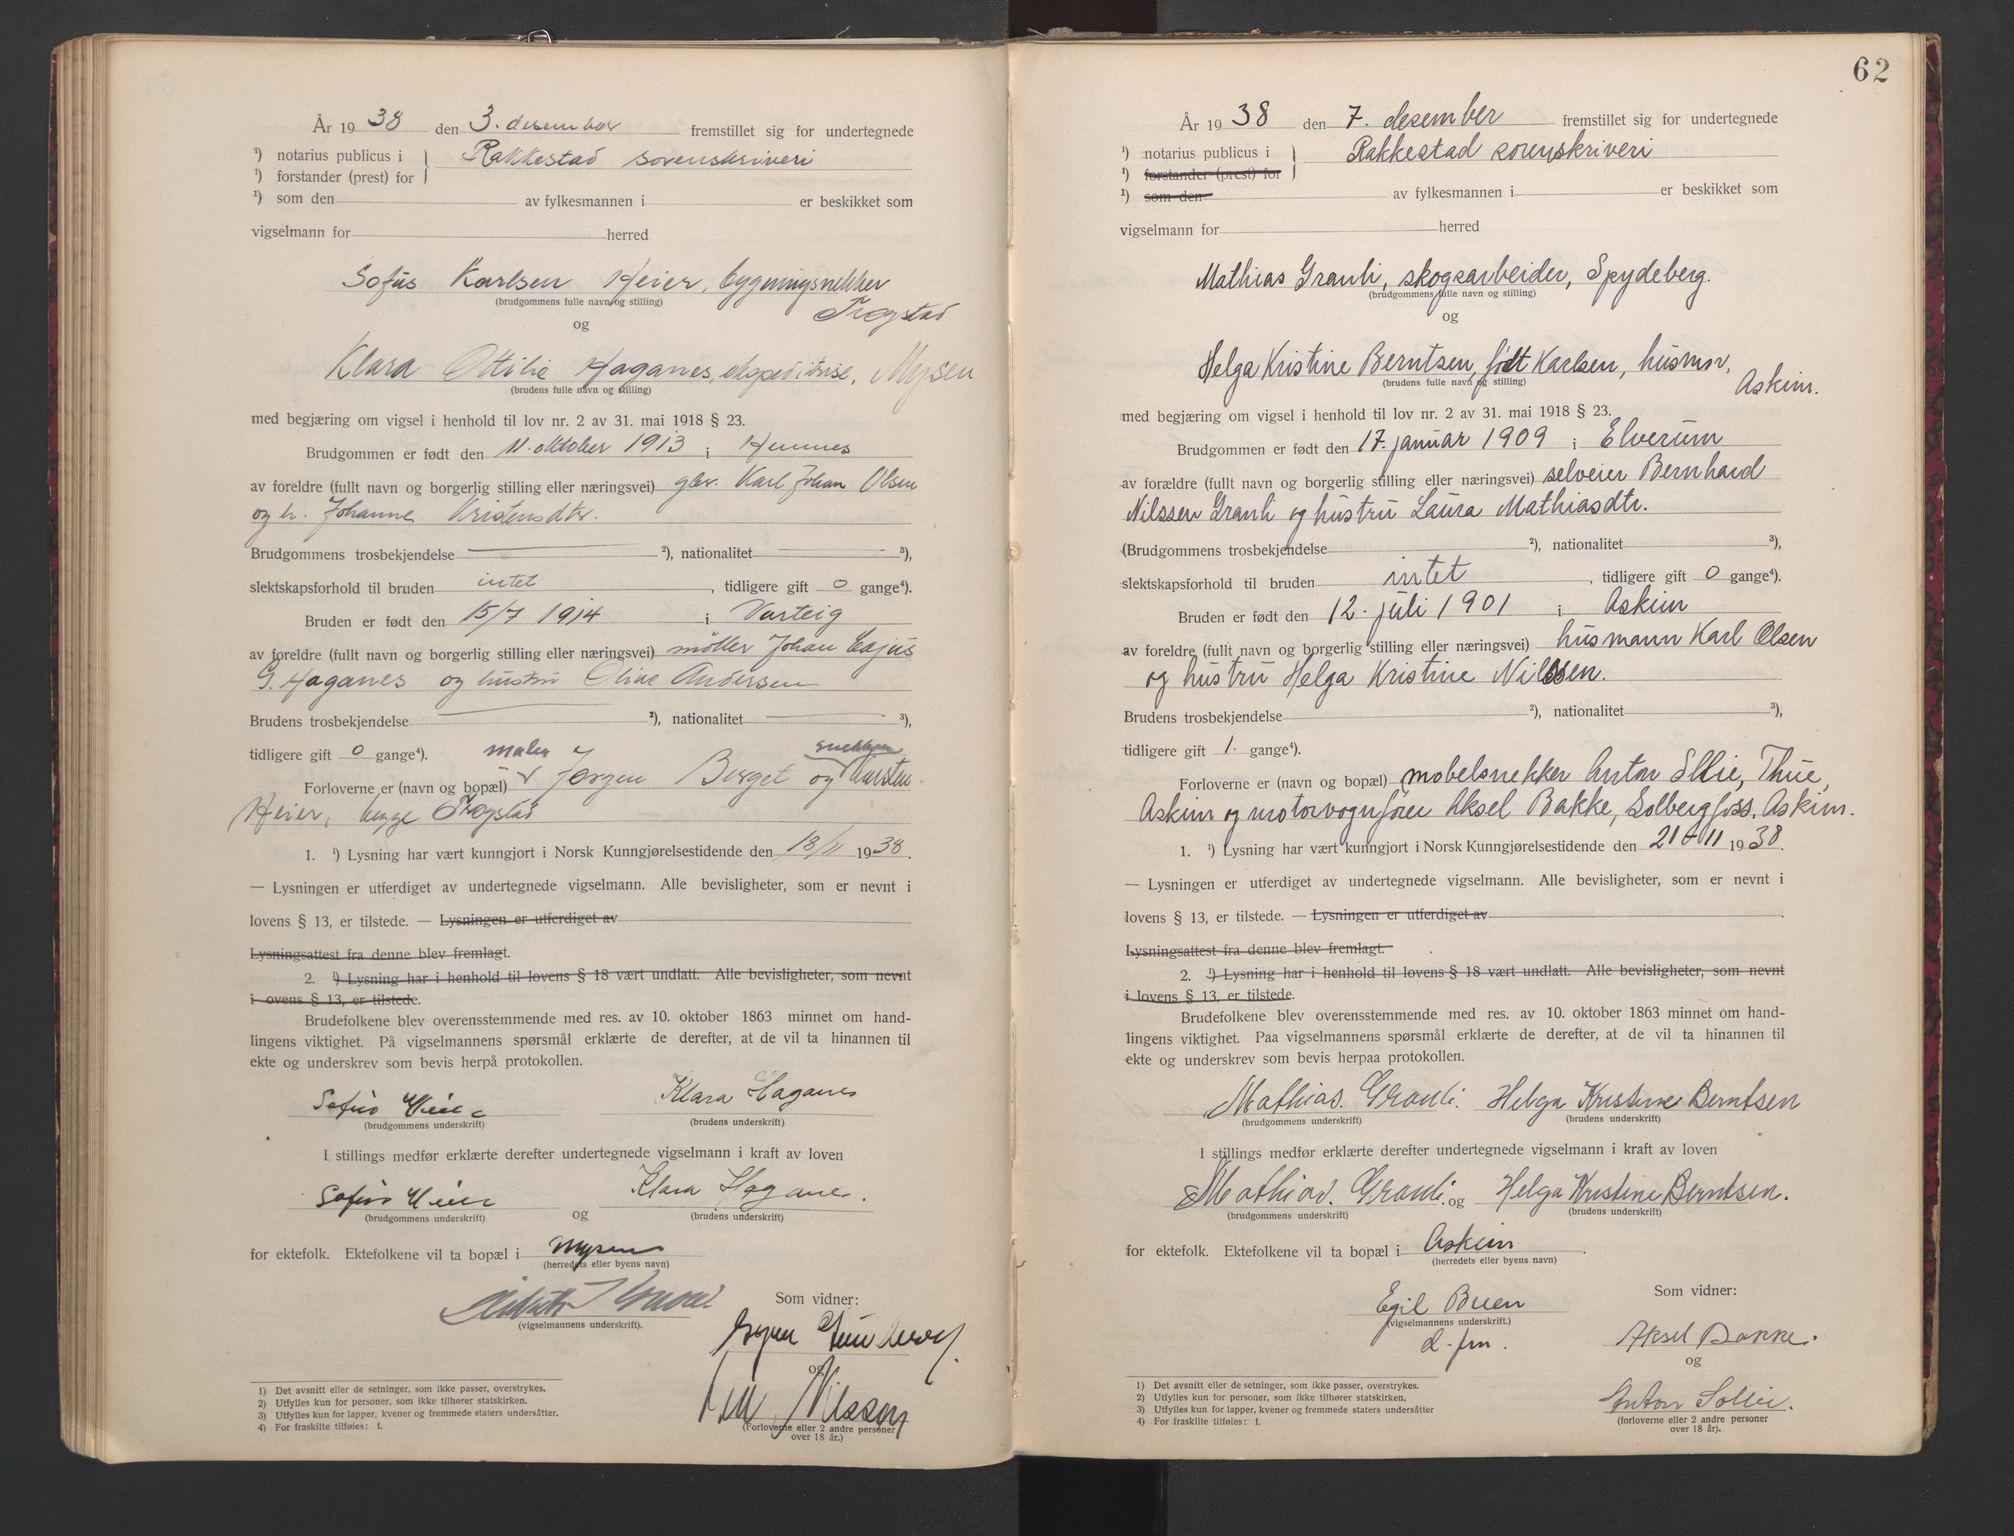 År 19 38 den 3. desember fremstillet sig for undertegnede
¹) notarius publicus i } Rakkestad sorenskriveri
¹) forstander (prest) for
¹) som den av fylkesmannen i er beskikket som
vigselmann for herred
Sofus Karlsen Heier, bygningsnekker
(brudgommens fulle navn og stilling)
Trøgstad
og
Klara Ottilie Haganes, ekspeditrise, Mysen
(brudens fulle navn og stilling)
med begjæring om vigsel i henhold til lov nr. 2 av 31. mai 1918 § 23.
Brudgommen er født den 11. oktober 1913 i Hemnes
av foreldre (fullt navn og borgerlig stilling eller næringsvei) gbr. Karl Johan Olsen
og h. Johanne Kristensdtr.
Brudgommens trosbekjendelse ²), nationalitet ³),
slektskapsforhold til bruden intet, tidligere gift 0 gange⁴).
Bruden er født den 15/7 1914 i Varteig
av foreldre (fullt navn og borgerlig stilling eller næringsvei) møller Johan Cajus
G. Haganes og hustru Oline Andersen
Brudens trosbekjendelse ²), nationalitet ³),
tidligere gift 0 gange⁴). maler snekker
Forloverne er (navn og bopæl) Jørgen Berget og Karsten
Heier, begge Trøgstad
1. ¹) Lysning har vært kunngjort i Norsk Kunngjørelsestidende den 18/11 1938.
— Lysningen er utferdiget av undertegnede vigselmann. Alle bevisligheter, som er nevnt i
lovens § 13, er tilstede. — Lysningen er utferdiget av
Lysningsattest fra denne blev fremlagt.
2. ¹) Lysning har i henhold til lovens § 18 vært undlatt. Alle bevisligheter, som nevnt
i ovens § 13, er tilstede.
Brudefolkene blev overensstemmende med res. av 10. oktober 1863 minnet om hand-
lingens viktighet. På vigselmannens spørsmål erklærte de derefter, at de vil ta hinannen til
ekte og underskrev som bevis herpå protokollen.
Sofus Heier Klara Haganes
(brudgommens underskrift) (brudens underskrift)
I stillings medfør erklærte derefter undertegnede vigselmann i kraft av loven
Sofus Heier Klara Haganes.
(brudgommens underskrift) og (brudens underskrift)
for ektefolk. Ektefolkene vil ta bopæl i Mysen
(herredets eller byens navn)
Som vidner:
(vigselmannens underskrift).
og
Nilsson
(Forloverne eller 2 andre personer
over 18 år.)
1) Det avsnitt eller de setninger, som ikke passer, overstrykes.
2) Utfylles kun for personer, som ikke tilhører statskirken.
3) Utfylles kun for lapper, kvener og fremmede staters undersåtter.
4) For fraskilte tilføies: f.
62
År 19 38 den 7. desember fremstillet sig for undertegnede
¹) notarius publicus i } Rakkestad sorenskriveri
¹) forstander (prest) for
¹) som den av fylkesmannen i er beskikket som
vigselmann for herred
Mathias Granli, skogsarbeider, Spydeberg.
(brudgommens fulle navn og stilling)
og
Helga Kristine Berntsen, født Karlsen, husmor,
(brudens fulle navn og stilling)
Askim.
med begjæring om vigsel i henhold til lov nr. 2 av 31. mai 1918 § 23.
Brudgommen er født den 17. januar 1909 i Elverum
av forældre (fullt navn og borgerlig stilling eller næringsvei) selveier Bernhard
Nilssen Granli og hustru Laura Mathiasdtr.
(Brudgommens trosbekjendelse ²), nationalitet ³),
slektskapsforhold til bruden intet, tidligere gift 0 gange⁴).
Bruden er født den 12. juli 1901 i Askim
av foreldre (fullt navn og borgerlig stilling eller næringsvei) husmann Karl Olsen
og hustru Helga Kristine Nilssen.
Brudens trosbekjendelse ²), nationalitet ³),
tidligere gift 1. gange⁴).
Forloverne er (navn og bopæl) møbelsnekker Anton Sllie, Thue,
Askim og motorvognfører Aksel Bakke, Solbergfoss, Askim.
1. ¹) Lysning har vært kunngjort i Norsk Kunngjørelsestidende den 21-11 1938.
— Lysningen er utferdiget av undertegnede vigselmann. Alle bevisligheter, som er nevnt i
lovens § 13, er tilstede. — Lysningen er utferdiget av
Lysningsattest fra denne blev fremlagt.
2. ¹) Lysning har i henhold til lovens § 18 vært undlatt. Alle bevisligheter, som nevnt
i lovens § 13, er tilstede.
Brudefolkene blev overensstemmende med res. av 10. oktober 1863 minnet om hand-
lingens viktighet. Paa vigselmannens spørsmål erklærte de derefter, at de vil ta hinannen til
ekte og underskrev som bevis herpaa protokollen.
Mathias. Granli. Helga Kristine Berntsen
(brudgommens underskrift) (brudens underskrift)
I stillings medfør erklærte derefter undertegnede vigselmann i kraft av loven
Mathias. Granli. og Helga Kristine Berntsen.
(brudgommens underskrift) (brudens underskrift)
for ektefolk. Ektefolkene vil ta bopæl i Askim
(herredets eller byens navn)
Egil Buen Som vidner:
(vigselmannens underskrift.)
d. fm. Aksel Bakke.
og
Anton Sollie.
(forloverne eller 2 andre personer
over 18 år).
1) Det avsnitt eller de setninger, som ikke passer, overstrykes.
2) Utfylles kun for personer, som ikke tilhører statskirken.
3) Utfylles kun for lapper, kvener og fremmede staters undersåtter
4) For fraskilte tilføies: f.